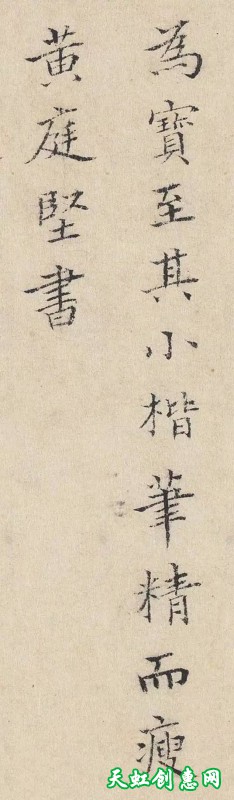 為寶至其小楷筆精而瘦
黄庭堅書
天虹创惠网